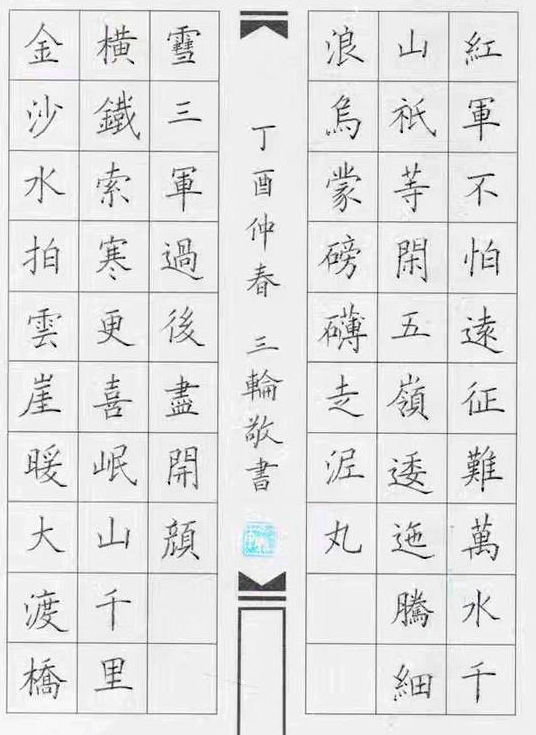 紅軍不怕遠征難萬水千
山祇等閑五嶺逶迤騰細
浪烏蒙磅礴走泥丸
金沙水拍雲崖暖大渡橋
橫鐵索寒更喜岷山千里
雪三軍過後盡開顏
丁酉仲春 三輪敬書